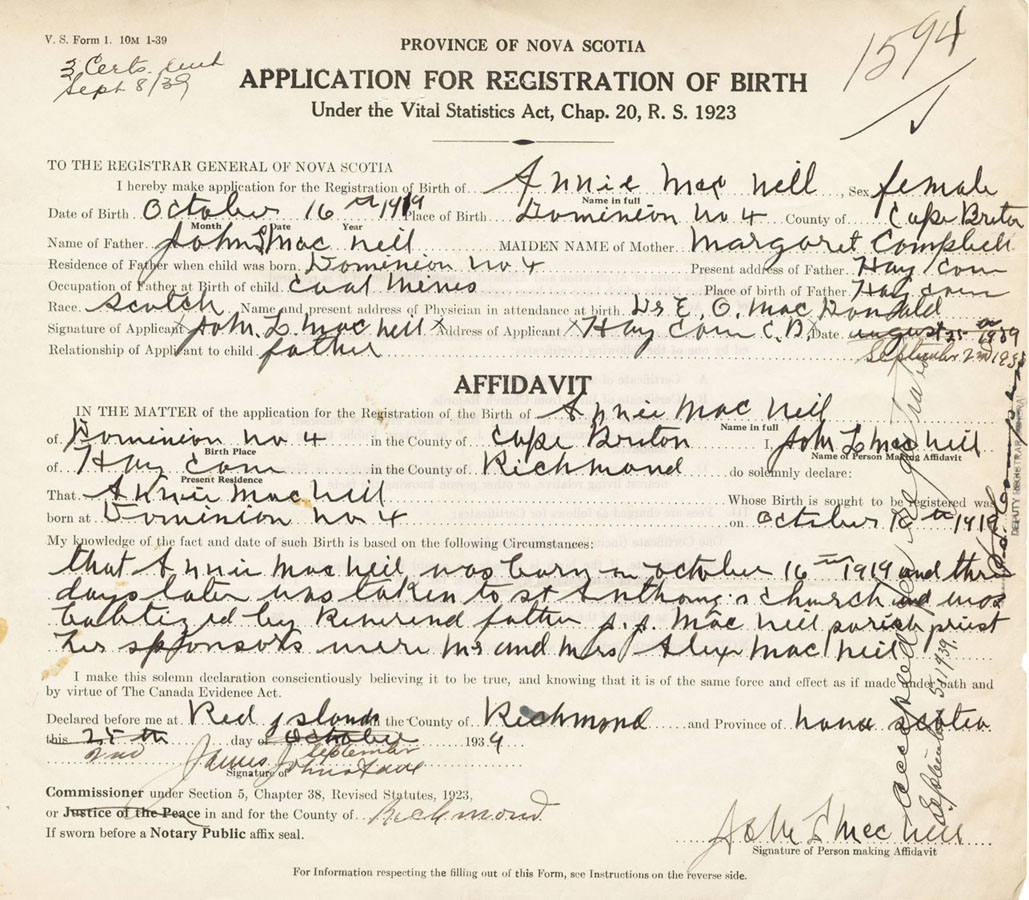 V. S. Form 1. 10M 1-39
3 Certs. sent
Sept 8/39
1594
PROVINCE OF NOVA SCOTIA
APPLICATION FOR REGISTRATION OF BIRTH
Under the Vital Statistics Act, Chap. 20, R. S. 1923
TO THE REGISTRAR GENERAL OF NOVA SCOTIA
I hereby make application for the Registration of Birth of Annie Mac Neil, Sex female
Name in full
Date of Birth October 16th 1919 Place of Birth Dominion No 4 County of Cape Briton
Month Date Year
Name of Father John L Mac Neil MAIDEN NAME of Mother Margaret Campbell
Residence of Father when child was born Dominion No 4 Present address of Father Hay Cove
Occupation of Father at Birth of child Coal Mines Place of birth of Father Hay Cove
Race Scotch Name and present address of Physician in attendance at birth Dr E. O. Mac Donald
Signature of Applicant John L Mac Neil X Address of Applicant X Hay Cove C.B. X Date August 25th 1939
September 2nd 1939
Relationship of Applicant to child father
AFFIDAVIT
IN THE MATTER of the application for the Registration of the Birth of Annie Mac Neil
Name in full
of Dominion No 4 in the County of Cape Briton I, John L Mac Neil
Birth Place Name of Person Making Affidavit
of Hay Cove in the County of Richmond do solemnly declare:
Present Residence
That Annie Mac Neil Whose Birth is sought to be registered was
born at Dominion No 4 on October 16th 1919
My knowledge of the fact and date of such Birth is based on the following Circumstances:
that Annie Mac Neil was born on October 16th 1919 and three
days later was taken to St Anthony's church and was
babtized by Reverend father J. J. Mac Neil parish priest
her sponsors were Mr and Mrs Alex Mac Neil
I make this solemn declaration conscientiously believing it to be true, and knowing that it is of the same force and effect as if made under oath and
by virtue of The Canada Evidence Act.
Declared before me at Red Islands in the County of Richmond and Province of Nova Scotia
this 25th day of October 1939
2nd September
James Johnstone
Signature of
Commissioner under Section 5, Chapter 38, Revised Statutes, 1923,
or Justice of the Peace in and for the County of Richmond
If sworn before a Notary Public affix seal.
John L Mac Neil
Signature of Person making Affidavit
For Information respecting the filling out of this Form, see Instructions on the reverse side.
Accepted for registration
September 5, 1939
DEPUTY REGISTRAR GENERAL